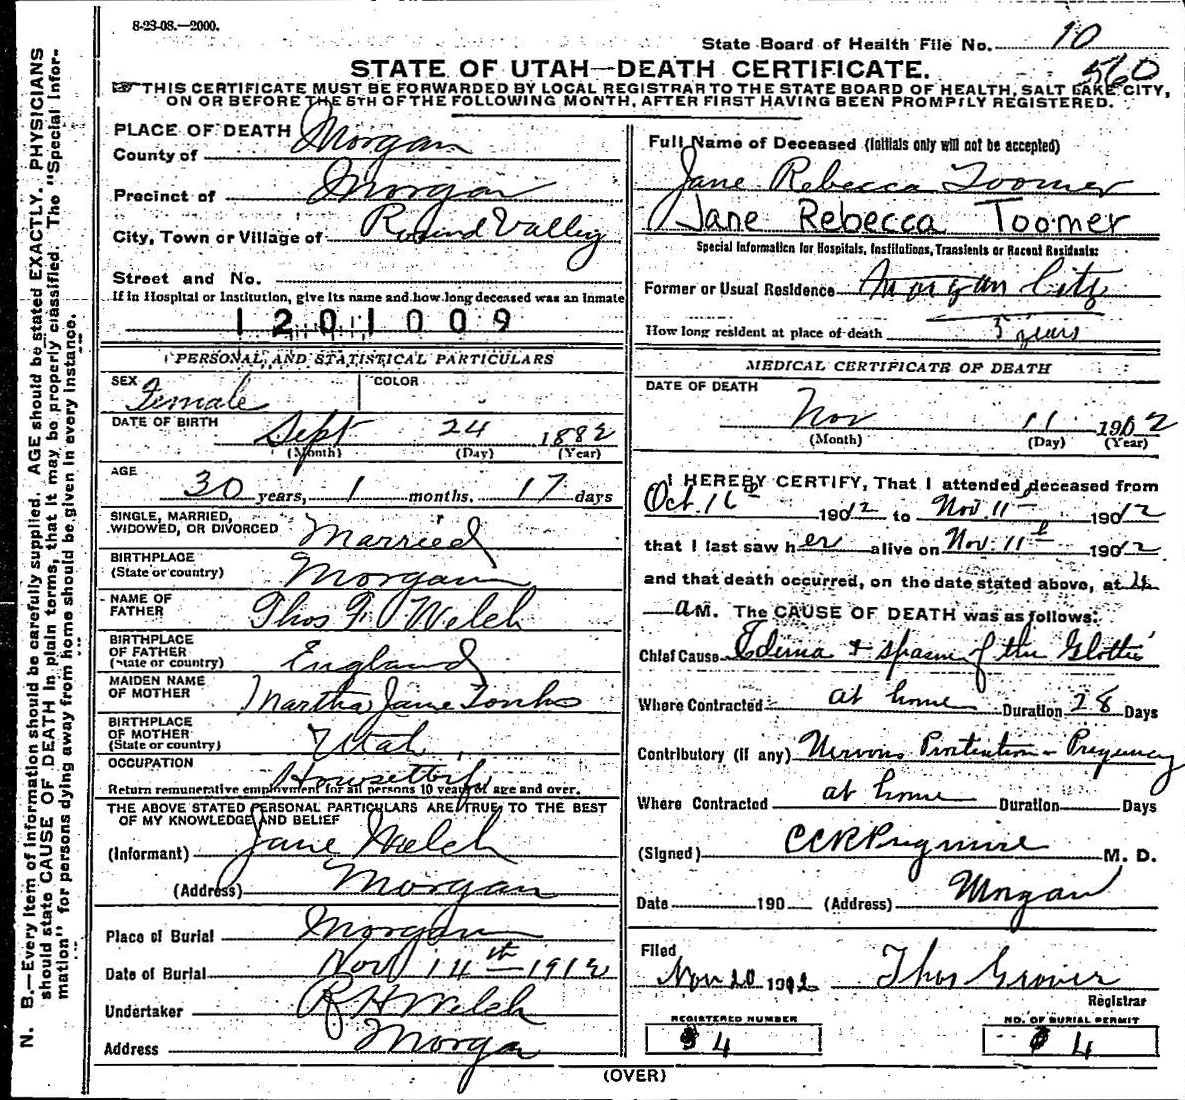 8-23-08.—2000.
State Board of Health File No. 10
560
STATE OF UTAH—DEATH CERTIFICATE.
THIS CERTIFICATE MUST BE FORWARDED BY LOCAL REGISTRAR TO THE STATE BOARD OF HEALTH, SALT LAKE CITY,
ON OR BEFORE THE 5TH OF THE FOLLOWING MONTH, AFTER FIRST HAVING BEEN PROMPTLY REGISTERED.
N. B.—Every item of information should be carefully supplied. AGE should be stated EXACTLY. PHYSICIANS
should state CAUSE OF DEATH in plain terms, that it may be properly classified. The "Special Infor-
mation" for persons dying away from home should be given in every instance.
PLACE OF DEATH
County of Morgan
Precinct of Morgan
City, Town or Village of Round Valley
Street and No.
If in Hospital or Institution, give its name and how long deceased was an inmate
1201009
PERSONAL AND STATISTICAL PARTICULARS
SEX Female
COLOR
DATE OF BIRTH Sept 24 1882
(Month) (Day) (Year)
AGE 30 years, 1 months, 17 days
SINGLE, MARRIED,
WIDOWED, OR DIVORCED Married
BIRTHPLACE
(State or country) Morgan
NAME OF
FATHER Thos F Welch
BIRTHPLACE
OF FATHER
(State or country) England
MAIDEN NAME
OF MOTHER Martha Jane
BIRTHPLACE
OF MOTHER
(State or country) Utah
OCCUPATION
Return remunerative employment for all persons 10 years of age and over.
THE ABOVE STATED PERSONAL PARTICULARS ARE TRUE TO THE BEST
OF MY KNOWLEDGE AND BELIEF
(Informant) Jane Welch
(Address) Morgan
Place of Burial Morgan
Date of Burial Nov 14th 1912
Undertaker R H Welch
Address Morgan
Full Name of Deceased (Initials only will not be accepted)
Jane Rebecca Toomer
Jane Rebecca Toomer
Special Information for Hospitals, Institutions, Transients or Recent Residents:
Former or Usual Residence Morgan City
How long resident at place of death 5 years
MEDICAL CERTIFICATE OF DEATH
DATE OF DEATH
Nov 11 1902
(Month) (Day) (Year)
I HEREBY CERTIFY, That I attended deceased from
Oct. 16th 19012 to Nov. 11th 19012
that I last saw her alive on Nov. 11th 19012
and that death occurred, on the date stated above, at 4
a M. The CAUSE OF DEATH was as follows:
Chief Cause Edema & spasm of the Glottis
Where Contracted at home Duration 28 Days
Contributory (if any) Nervous Prostration - Pregnancy
Where Contracted at home Duration Days
(Signed) M. D.
Date 190 (Address) Morgan
Filed
Nov 20 1912 Thos Grover
Registrar
REGISTERED NUMBER
4
NO. OF BURIAL PERMIT
4
(OVER)